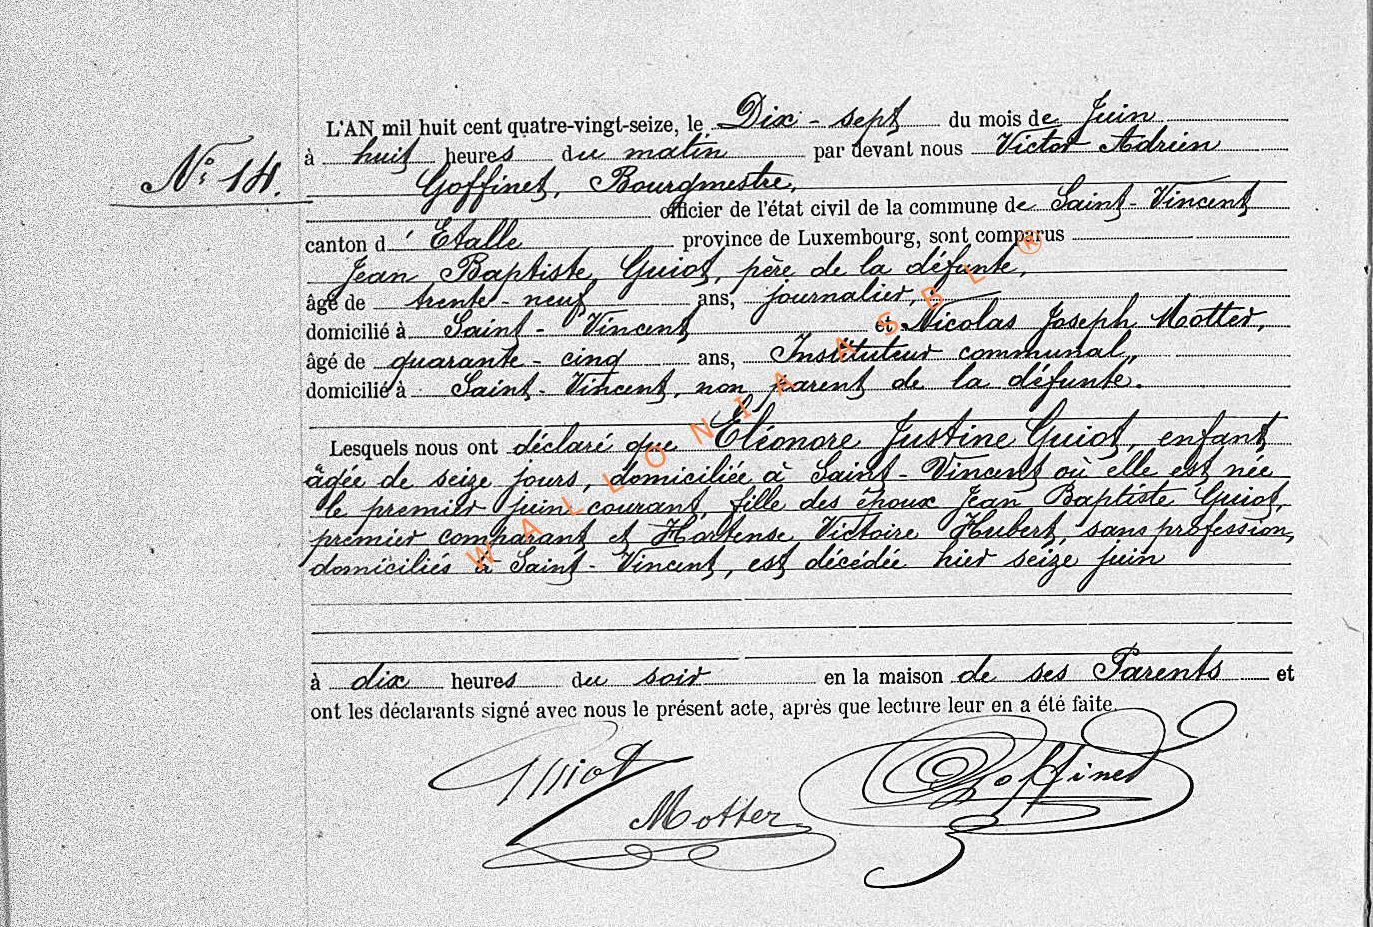 L'AN mil huit cent quatre-vingt-seize, le Dix-sept du mois de Juin
à huit heures du matin par devant nous Victor Adrien
N° 14.
Goffinet, Bourgmestre,
officier de l'état civil de la commune de Saint-Vincent
canton d'Etalle province de Luxembourg, sont comparus
Jean Baptiste Guiot, père de la défunte,
âgé de trente-neuf ans, journalier,
domicilié à Saint-Vincent et Nicolas Joseph Motter,
âgé de quarante-cinq ans, Instituteur communal,
domicilié à Saint-Vincent, non parent de la défunte.
Lesquels nous ont déclaré que Eléonore Justine Guiot, enfant
âgée de seize jours, domiciliée à Saint-Vincent où elle est née
le premier juin courant, fille des époux Jean Baptiste Guiot,
premier comparant et Hortense Victoire Hubert, sans profession,
domiciliés à Saint-Vincent, est décédée hier seize juin
à dix heures du soir en la maison de ses Parents et
ont les déclarants signé avec nous le présent acte, après que lecture leur en a été faite.
Guiot
Motter
Goffinet
WALLONIA ASBL ®